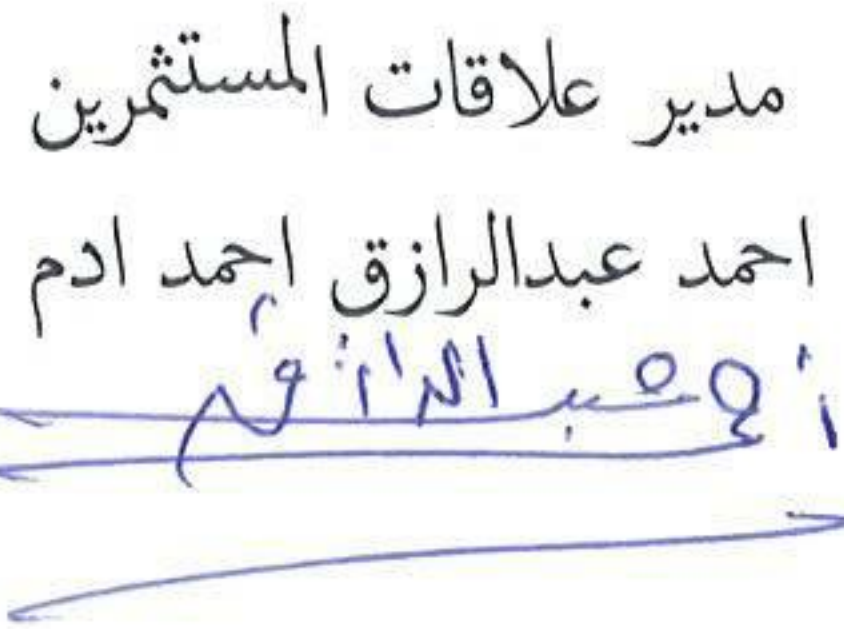 مدير علاقات المستثمرين
احمد عبدالرازق احمد ادم